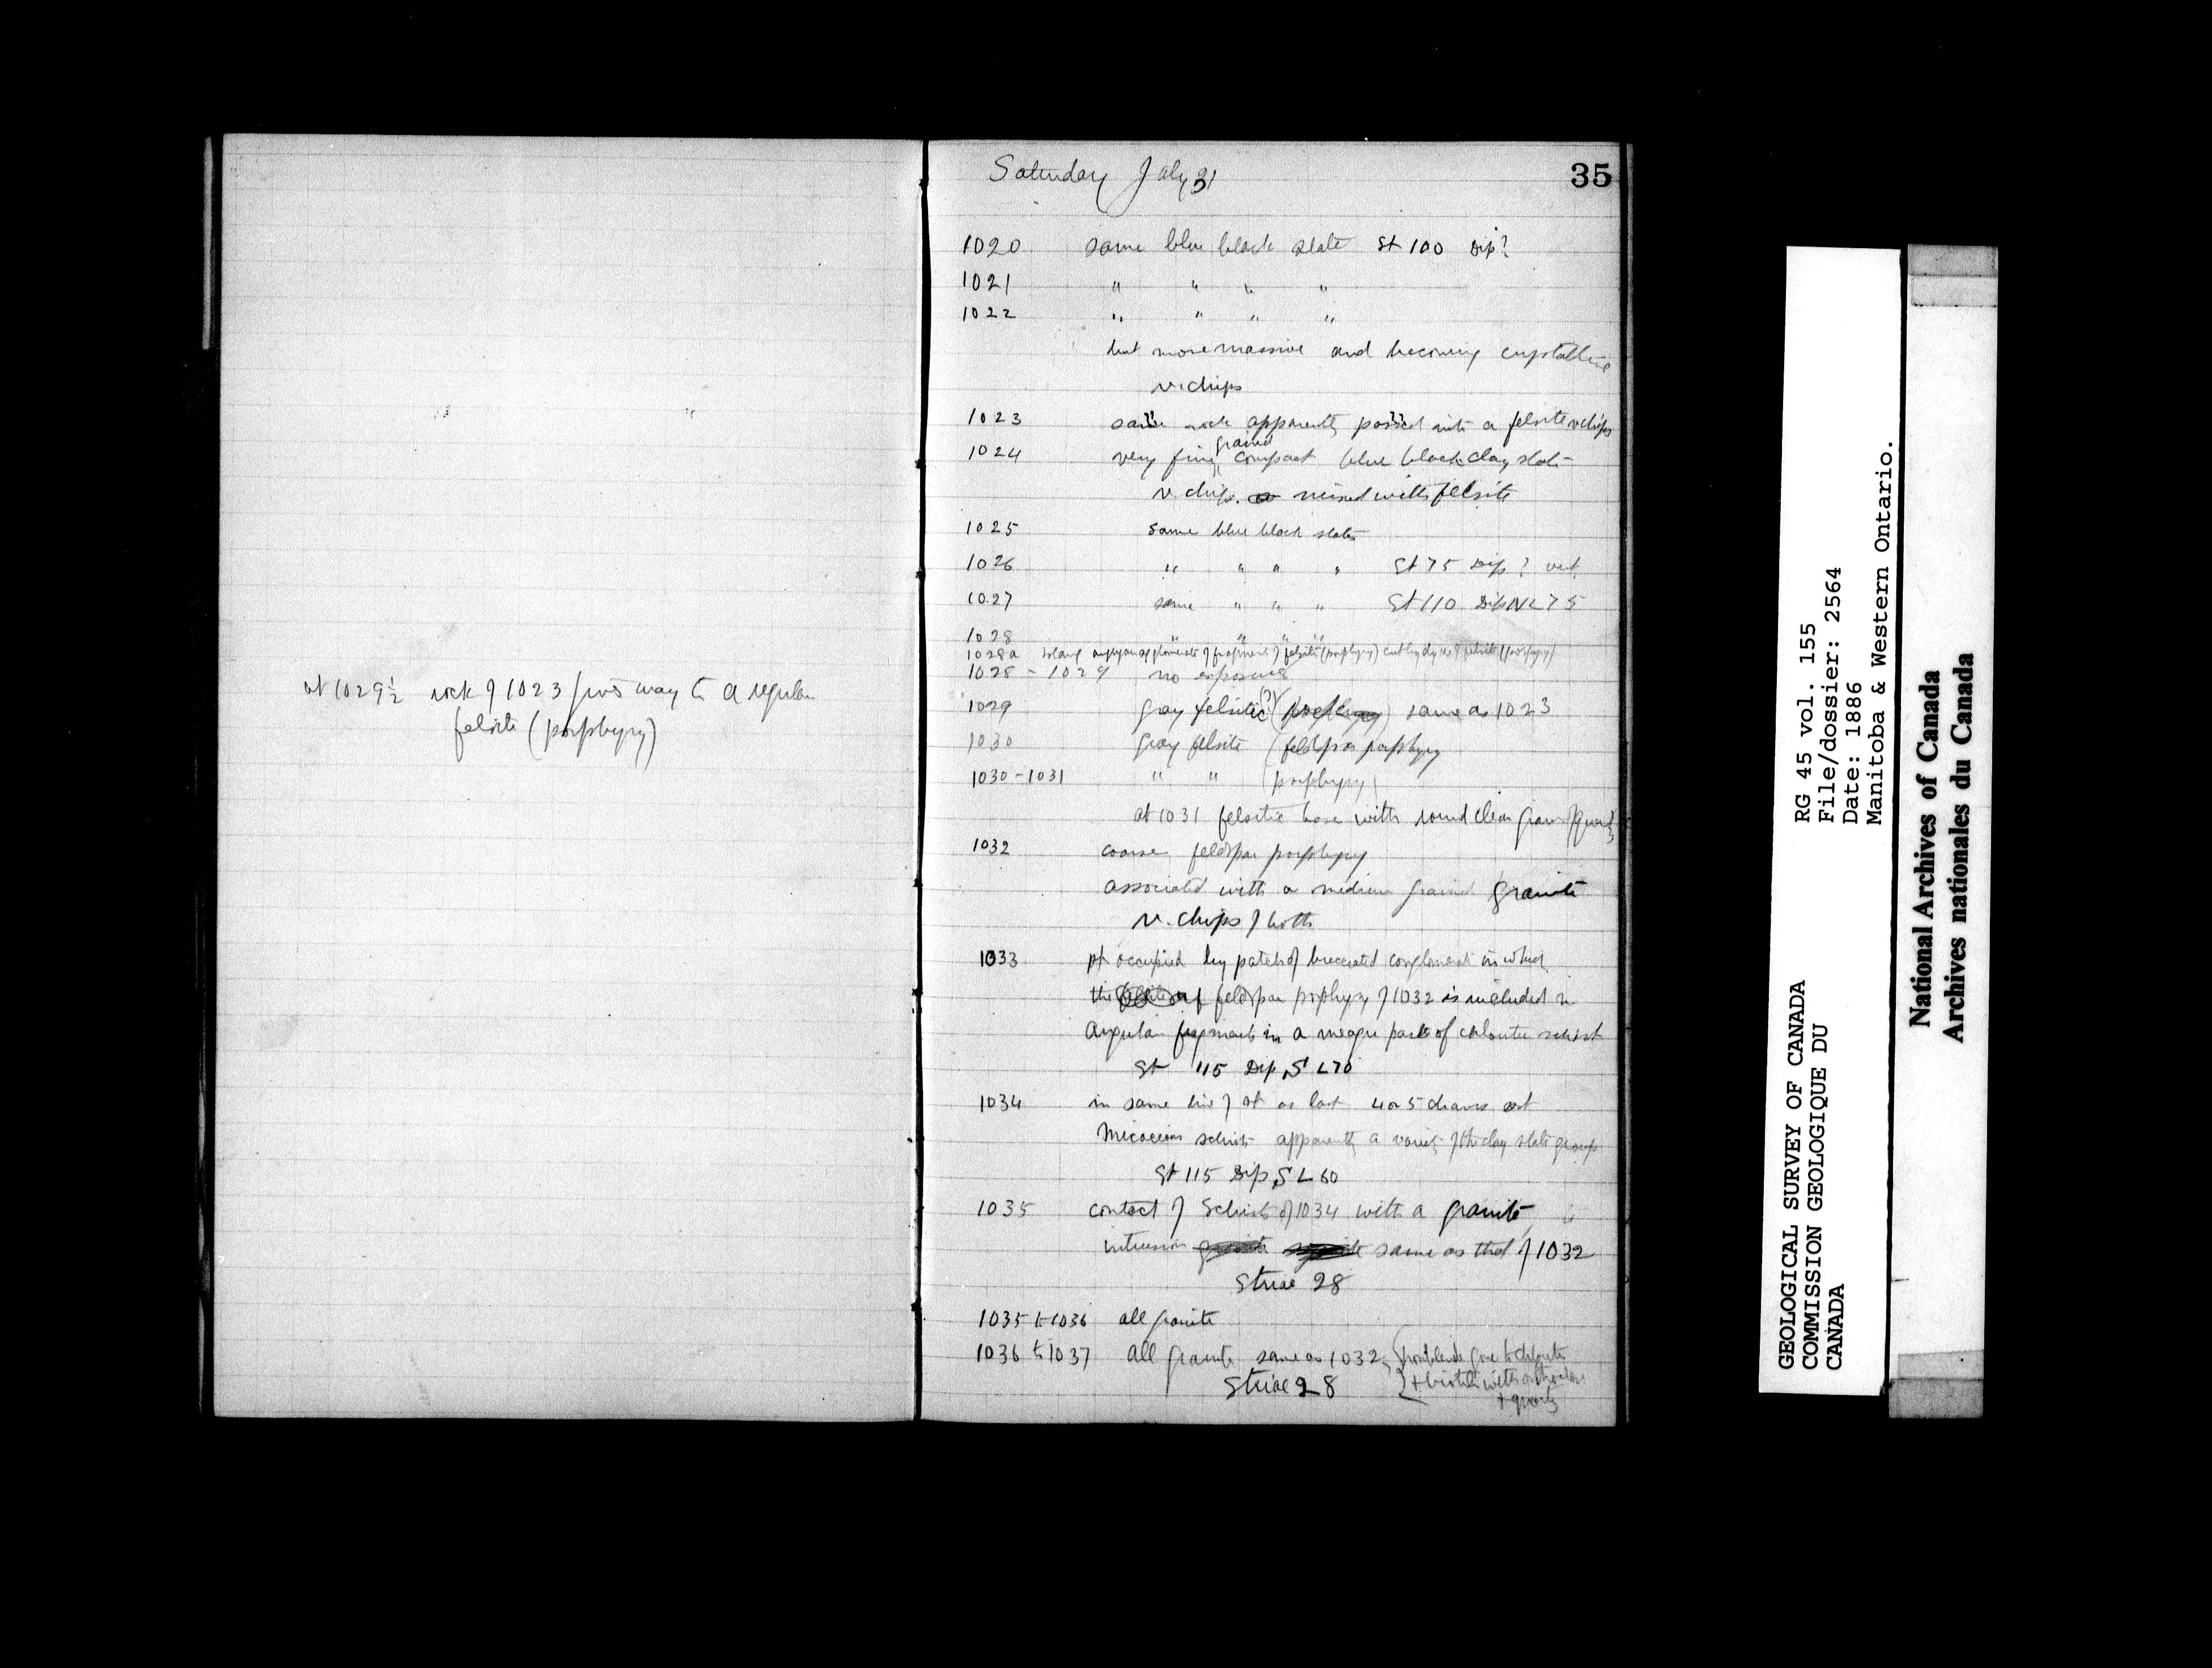 at 1029½ rock of 1023 gives way to a regular
felsite (porphyry)
Saturday July 31
35
1020 same blue black slate St 100 Dip?
1021 " " " "
1022 " " " "
but more massive and becoming crystalline
v. chips
1023 same rock apparently passed into a felsite v chips
1024 very fine grained compact blue black clay slate
v chips. mixed with felsite
1025 same blue black slate
1026 " " " " St 75 Dip? vert
1027 same " " " St 110 Dip N L 75
1028 " " " "
1028a agglomerate of fragments of felsite (porphyry) cut by dykes of felsite (porphyry)
1028 - 1029 no exposure
1029 gray felsitic (?) (porphyry) same as 1023
1030 gray felsite (feldspar porphyry
1030 - 1031 " " (porphyry)
at 1031 felsitic base with round clear grains of quartz
1032 coarse feldspar porphyry
associated with a medium grained granite
v. chips of both
1033 pt occupied by patch of brecciated conglomerate in which
the feldspar porphyry of 1032 is included in
angular fragments in a meagre paste of chloritic schist
St 115 Dip S L 70
1034 in same line of st as last 4 or 5 chains
Micaceous schist apparently a variety of the clay slate group
St 115 Dip S L 60
1035 contact of Schist of 1034 with a granite
intrusion same as that of 1032
Striae 28
1035 to 1036 all granite
1036 to 1037 all granite same as 1032, hornblende gone to chlorite
Striae 28 + biotite with orthoclase
+ quartz
GEOLOGICAL SURVEY OF CANADA
COMMISSION GEOLOGIQUE DU
CANADA
RG 45 vol. 155
File/dossier: 2564
Date: 1886
Manitoba & Western Ontario.
National Archives of Canada
Archives nationales du Canada